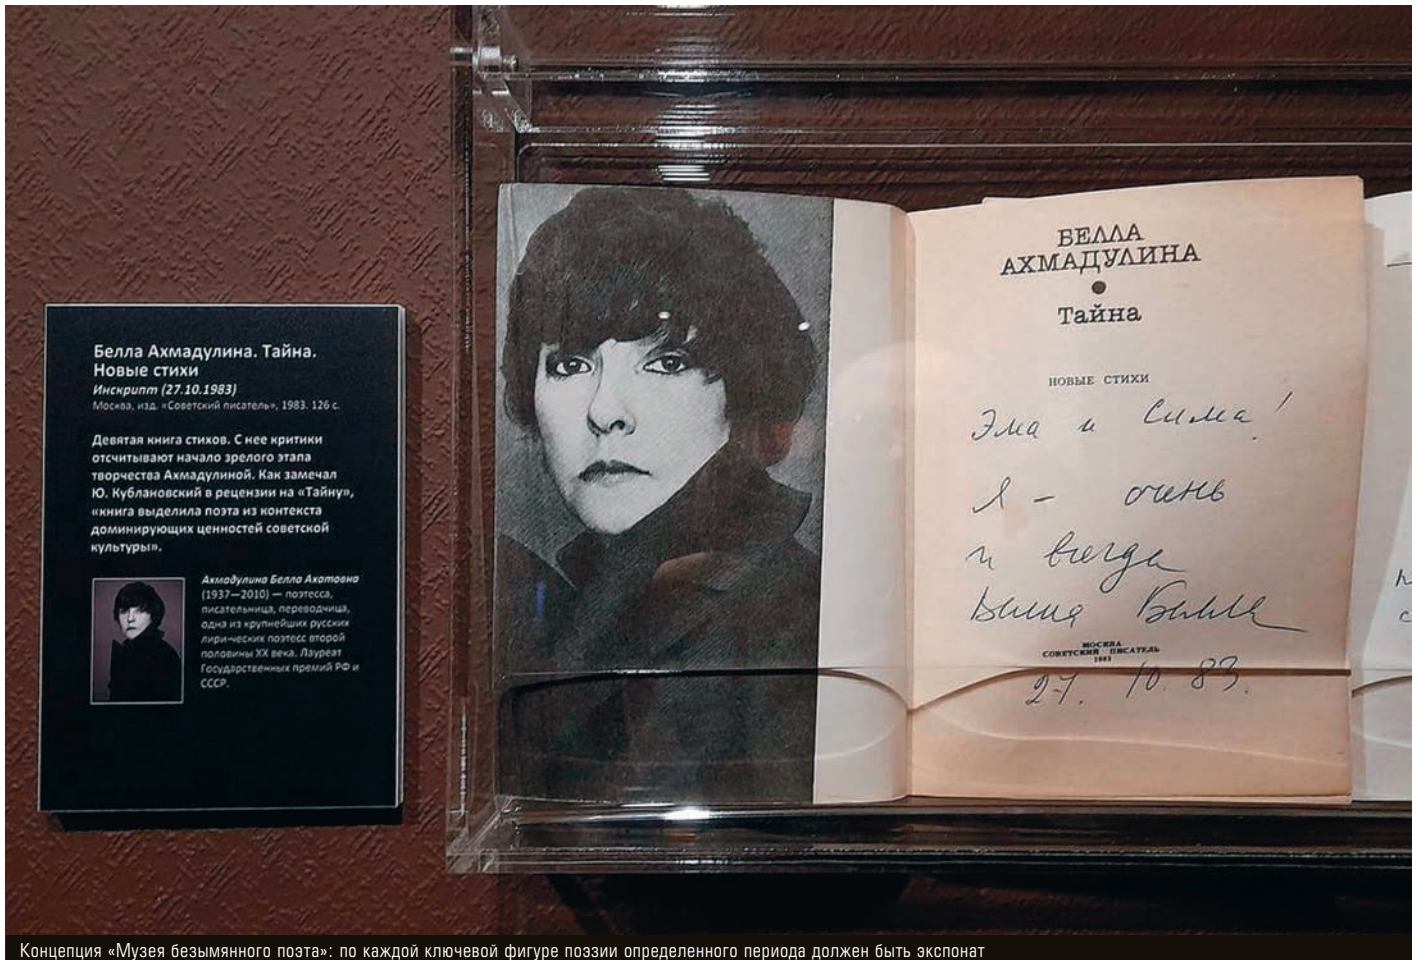 Белла Ахмадулина. Тайна.
Новые стихи
Инскрипт (27.10.1983)
Москва, изд. «Советский писатель», 1983. 126 с.
Девятая книга стихов. С нее критики
отсчитывают начало зрелого этапа
творчества Ахмадулиной. Как замечал
Ю. Кублановский в рецензии на «Тайну»,
«книга выделила поэта из контекста
доминирующих ценностей советской
культуры».
Ахмадулина Белла Ахатовна
(1937—2010) — поэтесса,
писательница, переводчица,
одна из крупнейших русских
лири-ческих поэтесс второй
половины XX века. Лауреат
Государственных премий РФ и
СССР.
БЕЛЛА
АХМАДУЛИНА
Тайна
НОВЫЕ СТИХИ
Эма и Сима!
Я – очень
и всегда
Ваша Белла
МОСКВА
СОВЕТСКИЙ ПИСАТЕЛЬ
1983
27. 10. 83.
Концепция «Музея безымянного поэта»: по каждой ключевой фигуре поэзии определенного периода должен быть экспонат